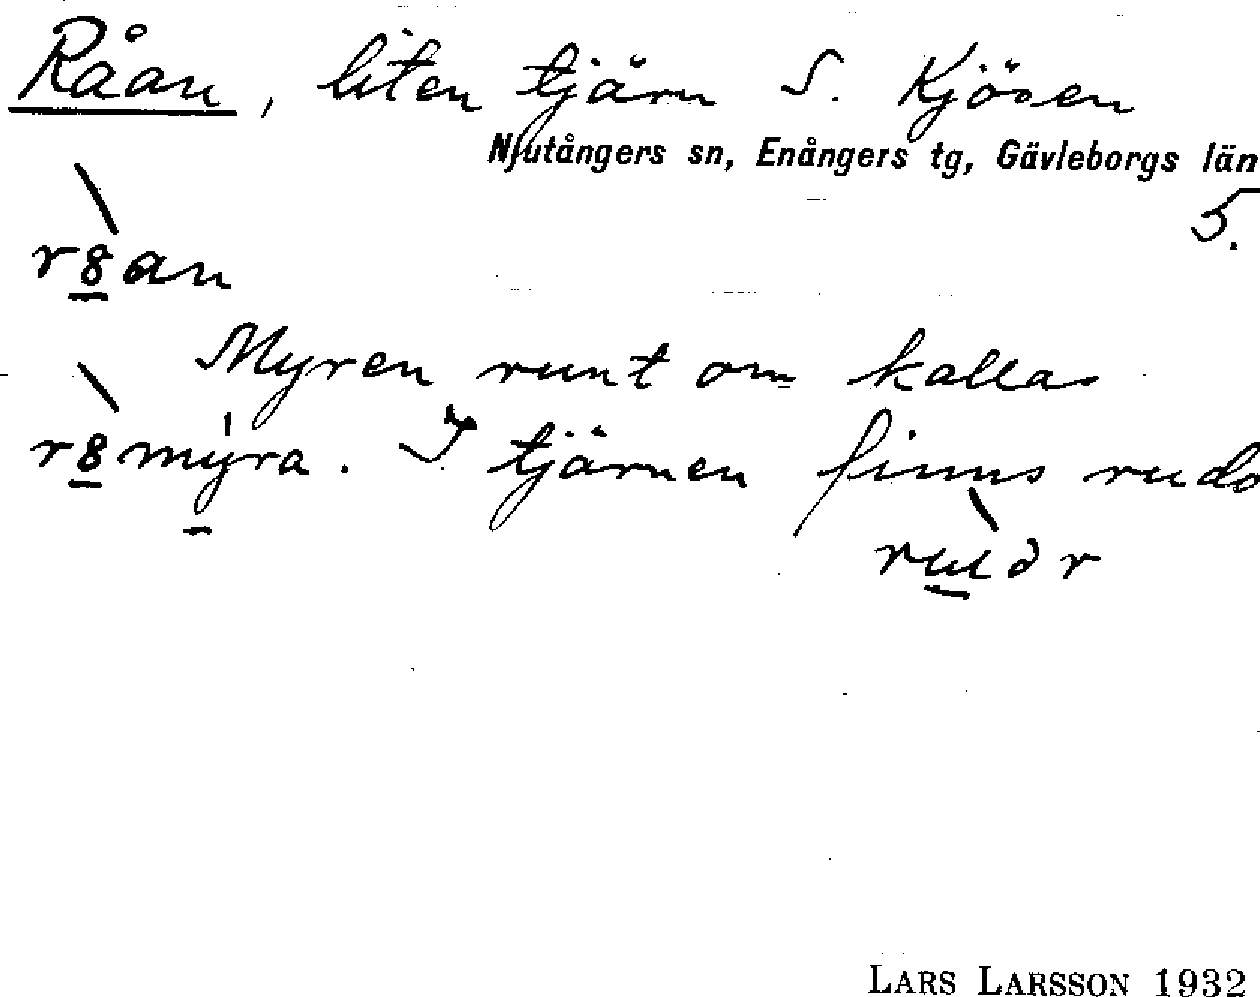 Råan, liten tjärn S. Kjösen
Njutångers sn, Enångers tg, Gävleborgs län
5.
r8an
Myren runt om kallas
r8myra. I tjärnen finns rudo
rudr
LARS LARSSON 1932